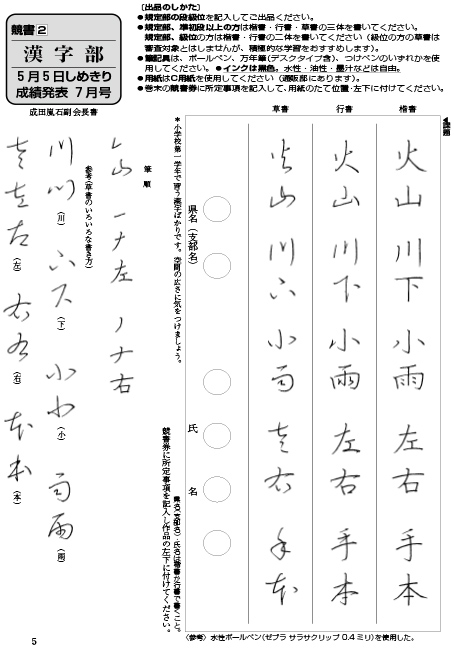 競書2
漢字部
5月5日しめきり
成績発表 7月号
成田嵐石副会長書
〔出品のしかた〕
●規定部の段級位を記入してご出品ください。
●規定部、準初段以上の方は楷書・行書・草書の三体を書いてください。
規定部、級位の方は楷書・行書の二体を書いてください(級位の方の草書は
審査対象とはしませんが、積極的な学習をおすすめします)。
●筆記具は、ボールペン、万年筆(デスクタイプ含)、つけペンのいずれかを使
用してください。●インクは黒色。水性・油性・墨汁などは自由。
●用紙はC用紙を使用してください(通販部にあります)。
●巻末の競書券に所定事項を記入して、用紙のたて位置・左下に付けてください。
◀課題
楷書
火山 川下 小雨 左右 手本
行書
火山 川下 小雨 左右 手本
草書
火山 川下 小雨 左右 手本
県名(支部名)
氏名
*小学校第一学年で習う漢字ばかりです。空間の広さに気をつけましょう。
県名(支部名)・氏名は楷書か行書で書くこと。
競書券に所定事項を記入し作品の左下に付けてください。
筆順
山 一ナ左 ノナ右
参考(草書のいろいろな書き方)
(川) (下) (小) (雨)
(左) (右) (本)
〈参考〉水性ボールペン(ゼブラ サラサクリップ 0.4ミリ)を使用した。
5